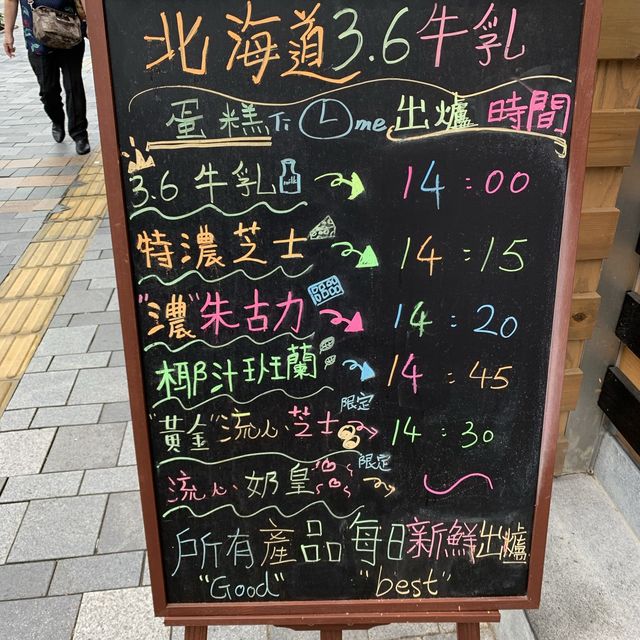 北海道3.6牛乳
蛋糕Time 出爐時間
3.6牛乳 milk 14:00
特濃芝士 14:15
"濃"朱古力 14:20
椰汁班蘭 14:45
"黃金"流心芝士 限定 14:30
流心奶皇 限定
所有產品每日新鮮出爐
"Good" "best"